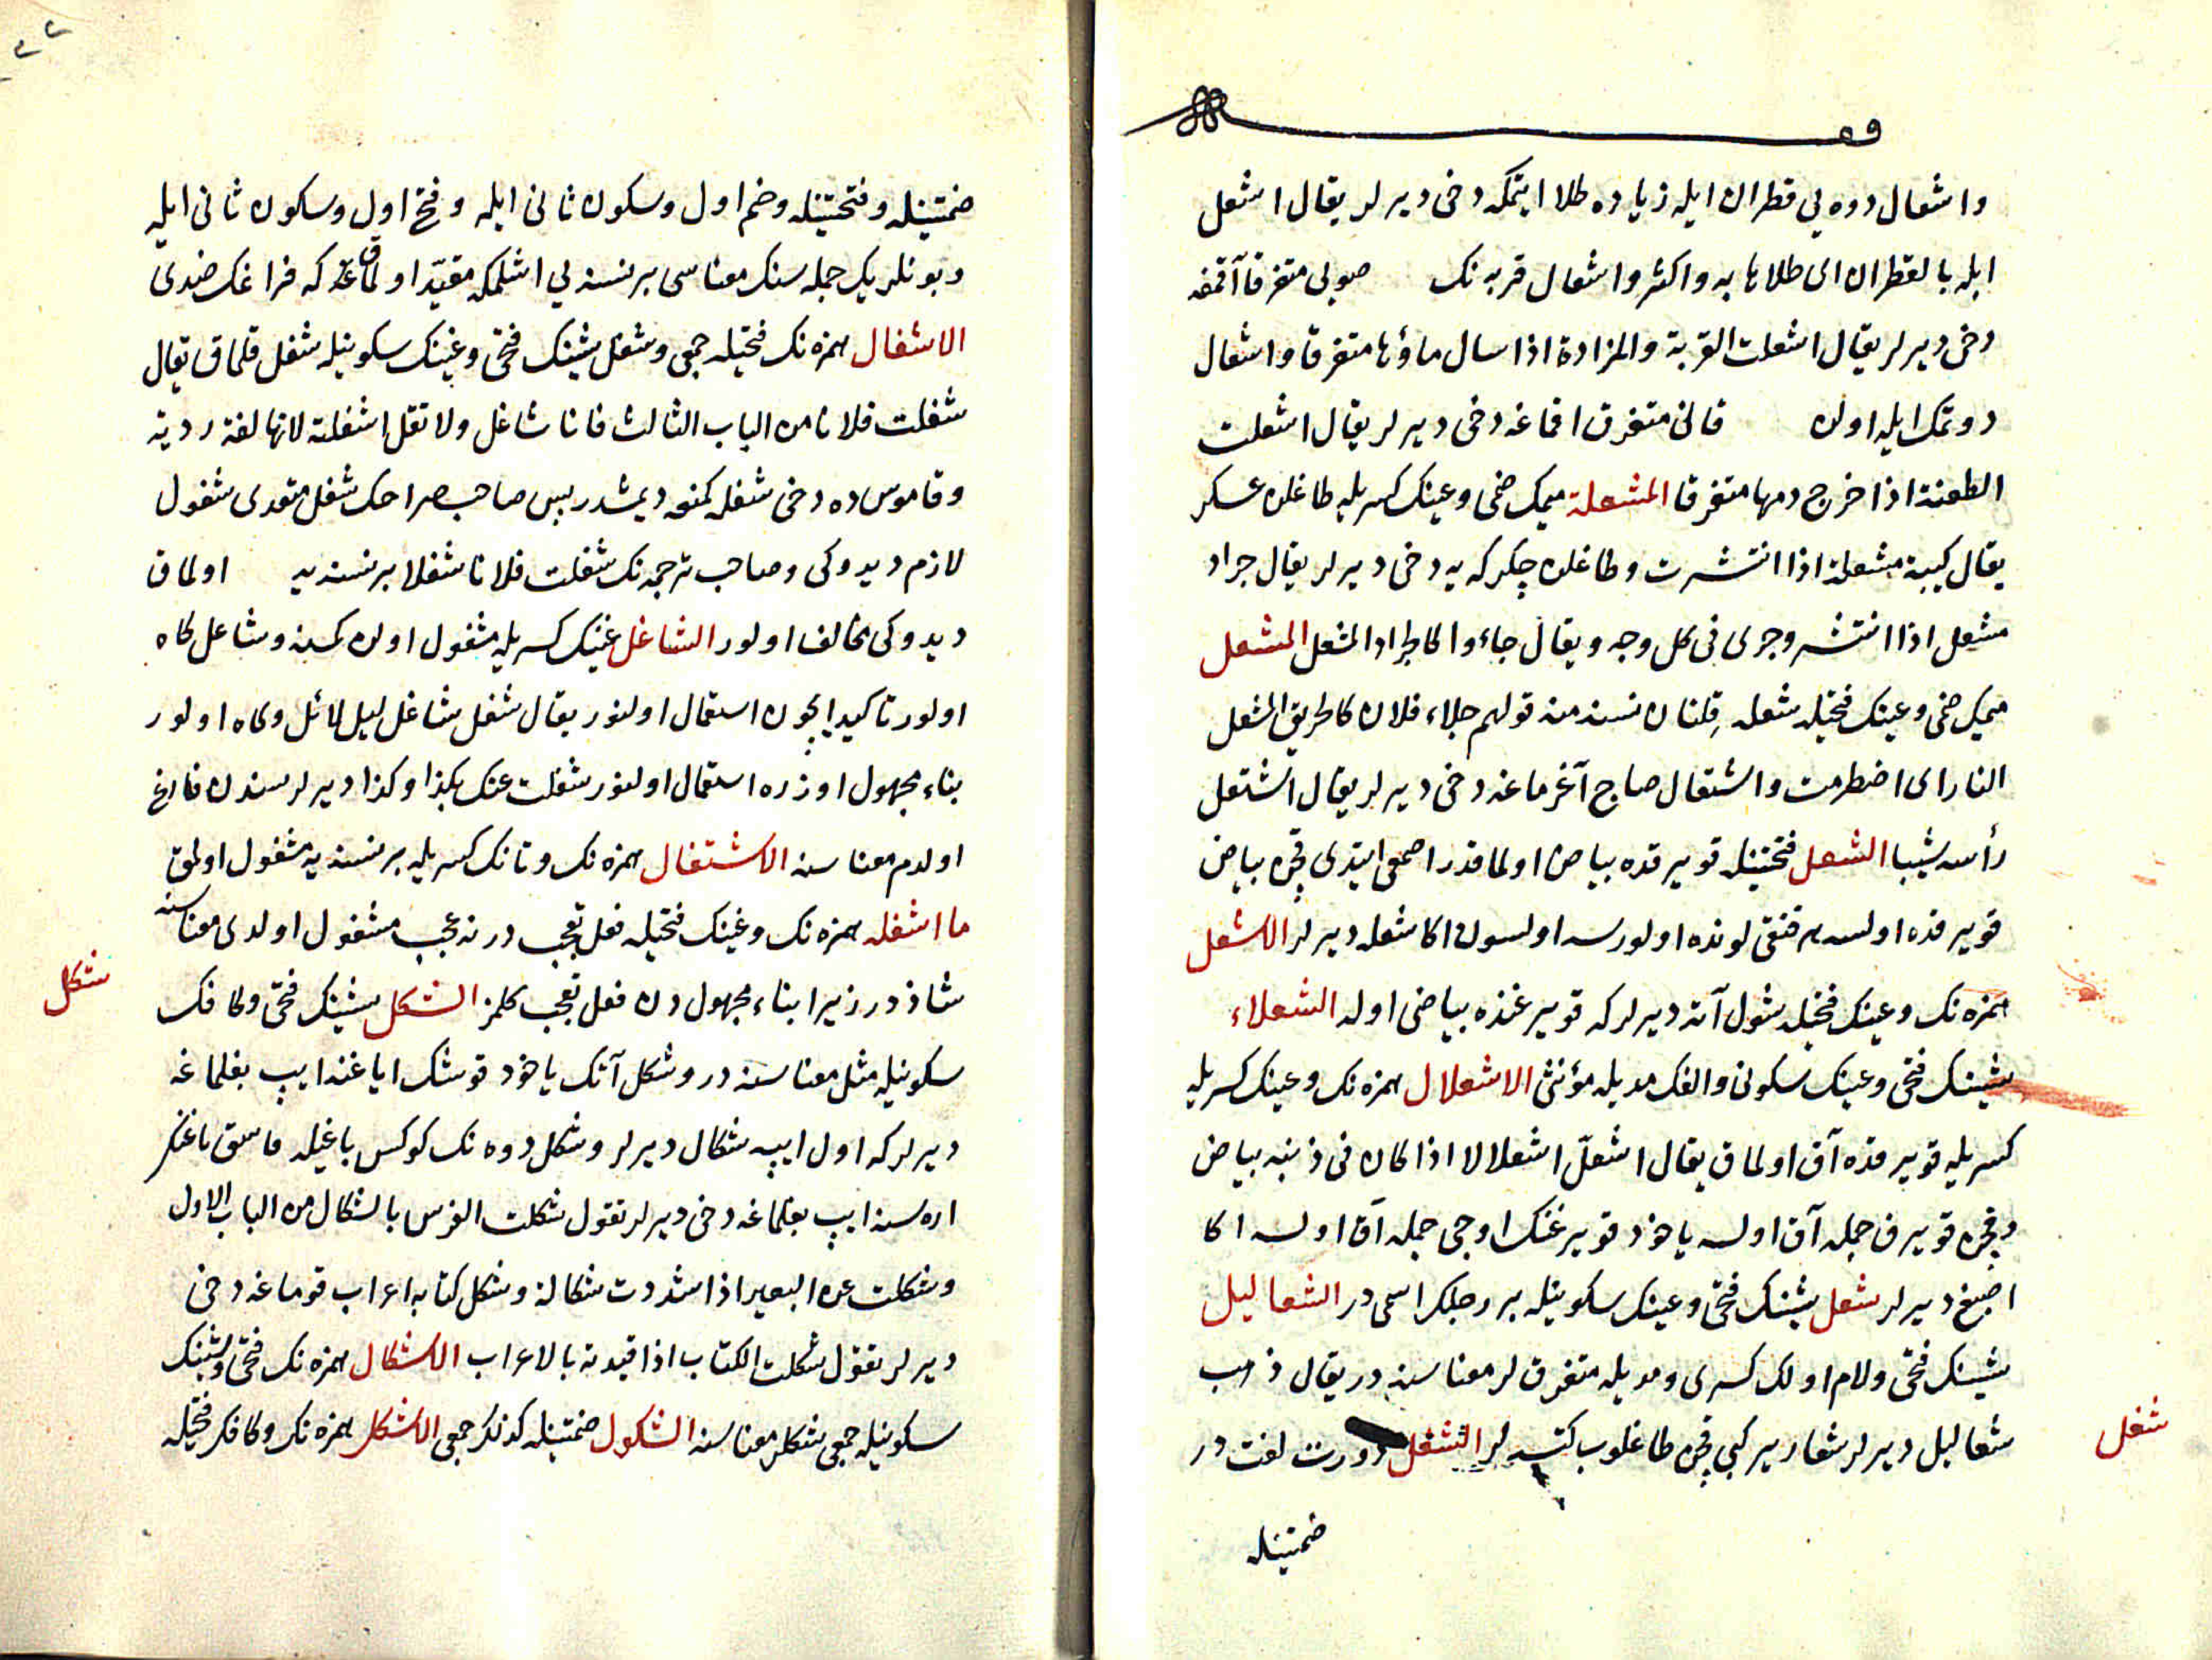 واشعال دوه يي قطران ايله زياده طلا ايتمكه دخى ديرلر يقال اشعل
ابله بالقطران اى طلاها به واكثر واشعال قربه نك صويى متفرقا آقمغه
دخى ديرلر يقال اشعلت القربة والمزادة اذا سال ماؤها متفرقا واشعال
دوتمك ايله اولان قانى متفرق اقماغه دخى ديرلر يقال اشعلت
الطعنة اذا خرج دمها متفرقا المشعلة ميمك ضمى وعينك كسريله طاغلن عسكر
يقال كتيبة مشعلة اذا انتشرت وطاغلن چكركه يه دخى ديرلر يقال جراد
مشعل اذا انتشر وجرى فى كل وجه ويقال جاءوا كالجراد المشعل المشعل
ميمك ضمى وعينك فتحيله شعله قلنان نسنه منه قولهم جاء فلان كالحريق المشعل
النار اى اضطرمت واشتعال صاج آغرماغه دخى ديرلر يقال اشتعل
رأسه شيبا الشعل فتحتينله قويرقده بياض اولماقدر اصمعى ايتدى قچن بياض
قويرقده اولسه هر قنغى لونده اولورسه اولسون اكا شعله ديرلر الاشعل
همزه نك وعينك فتحيله شول آته ديرلر كه قويرغنده بياضى اوله الشعلاء
شينك فتحى وعينك سكونى والفك مديله مؤنثى الاشعلال همزه نك وعينك كسريله
كسريله قويرقده آق اولماق يقال اشعلّ اشعلالا اذا كان فى ذنبه بياض
وقچن قويرق جمله آق اولسه ياخود قويرغنك اوجى جمله آق اولسه اكا
اصبغ ديرلر شعل شينك فتحى وعينك سكونيله بر رجلك اسمى در الشعاليل
شينك فتحى ولام اولك كسرى ومديله متفرقلر معناسنه در يقال ذهب
شعاليل ديرلر شعارير كبى قچن طاغلوب كتسه لر الشغل دورت لغت در
شغل
ضمتينله
ضمتينله وفتحتينله وضم اول وسكون ثانى ايله وفتح اول وسكون ثانى ايله
وبونلريك جمله سنك معناسى بر نسنه يي اشلمكه مقيّد اولماقدر كه فراغك ضدى
الاشغال همزه نك فتحيله جمعى وشغل شينك فتحى وغينك سكونيله شغل قلماق يقال
شغلت فلانا من الباب الثالث فانا شاغل ولا تقل اشغلته لانها لغة ردية
وقاموس ده دخى شغله كمنعه ديمشدر پس صاحب صراحك شغل متعدى شغول
لازم ديدوكى وصاحب ترجمه نك شغلت فلانا شغلا بر نسنه يه اولماق
ديدوكى مخالف اولور الشاغل غينك كسريله مشغول اولان كمسنه وشاغل كاه
اولور تاكيد ايچون استعمال اولنور يقال شغل شاغل ليل لائل وكاه اولور
بناء مجهول اوزره استعمال اولنور شغلت عنك بكذا وكذا ديرلر سندن فارغ
اولدم معناسنه الاشتغال همزه نك وتانك كسريله بر نسنه يه مشغول اولمق
ما اشغله همزه نك وغينك فتحيله فعل تعجب در نه عجب مشغول اولدى معناسنه
شاذدر زيرا بناء مجهول دن فعل تعجب كلمز الشكل شينك فتحى وكافك
شكل
سكونيله مثل معناسنه در وشكل آتك ياخود قوشك اياغنه ايپ بغلماغه
ديرلر كه اول ايپه شكال ديرلر وشكل دوه نك كوكس باغيله قاسق باغنك
اره سنه ايپ بغلماغه دخى ديرلر نقول شكلت الفرس بالشكال من الباب الاول
وشكلت عن البعير اذا شددت شكاله وشكل كتابه اعراب قوماغه دخى
ديرلر نقول شكلت الكتاب اذا قيدته بالاعراب الاشكال همزه نك فتحى وشينك
سكونيله جمعى شكللر معناسنه الشكول ضمتينله كذلك جمعى الاشكل همزه نك وكافك فتحيله